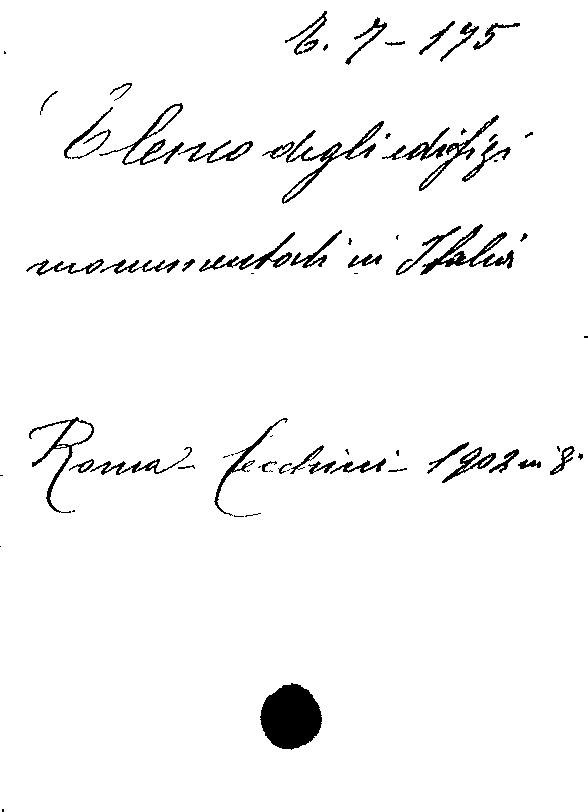 E. 7 - 175
Elenco degli edifizi
monumentali in Italia
Roma - Cecchini - 1902 in 8°